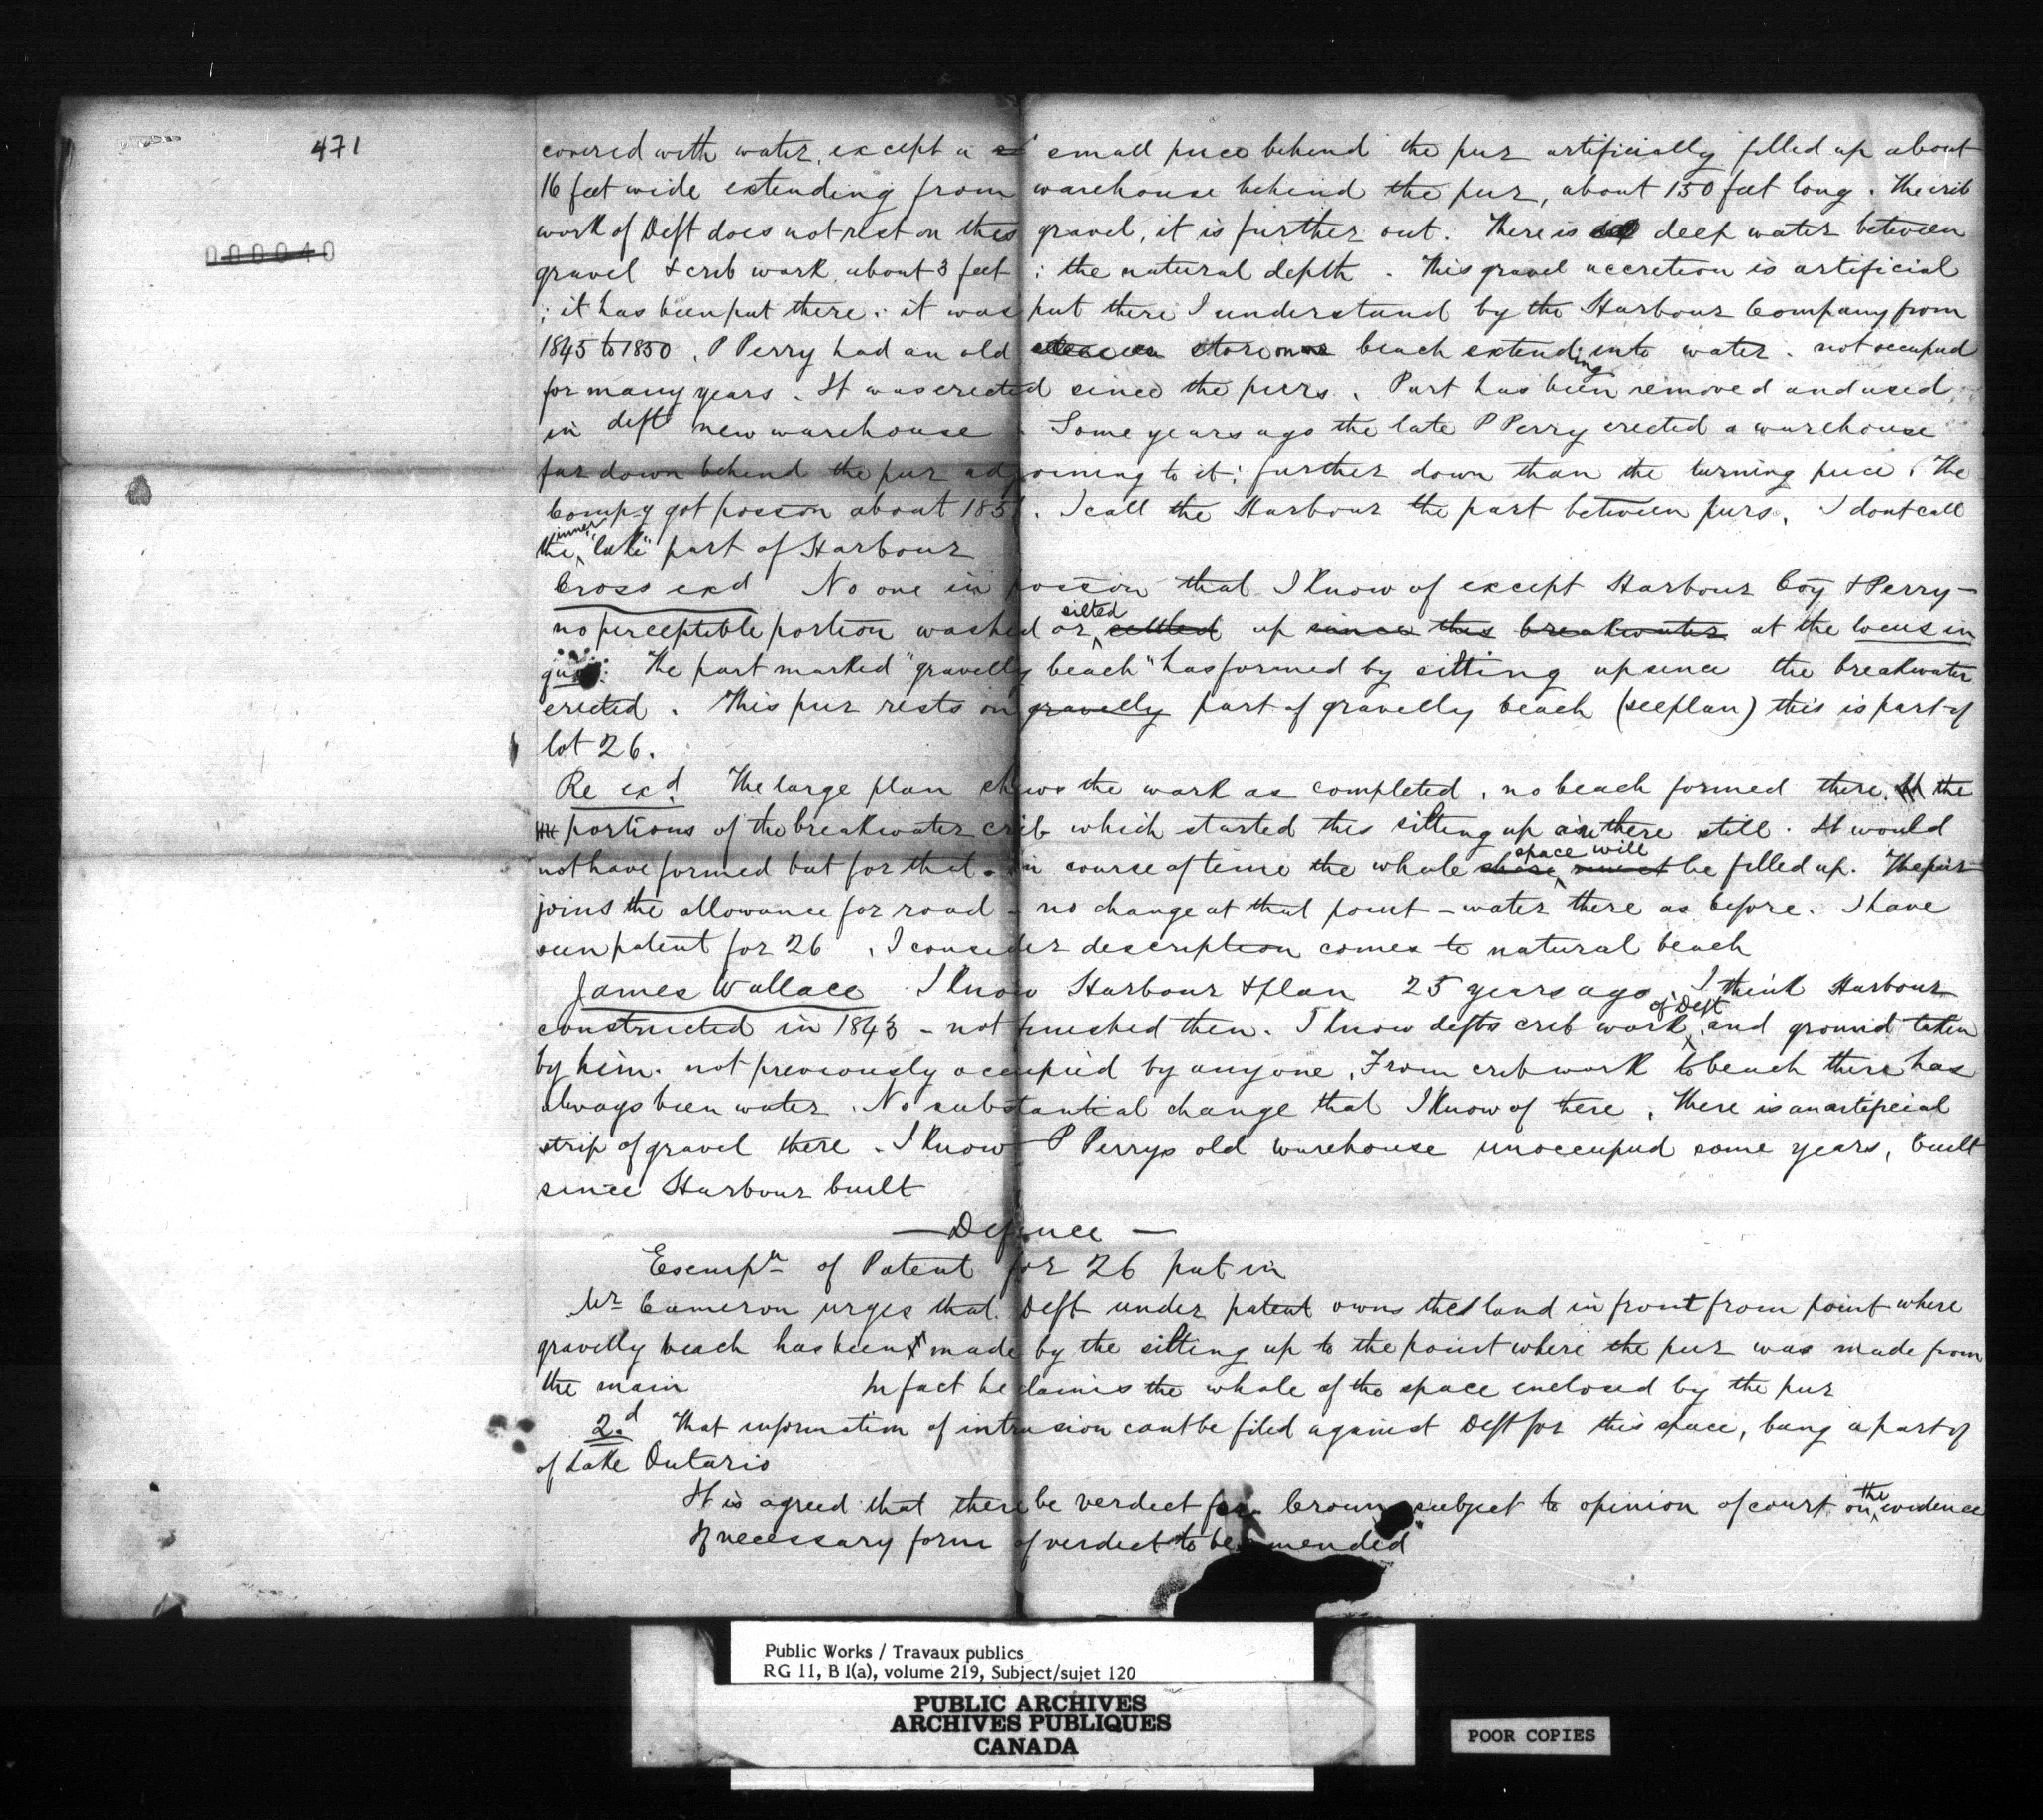 471
000040
covered with water, except a small piece behind the pier artificially filled up about
16 feet wide extending from warehouse behind the pier, about 150 feet long. The crib
work of Deft does not rest on this gravel, it is further out. There is deep water between
gravel & crib work about 3 feet : the natural depth. This gravel accretion is artificial
; it has been put there : it was put there I understand by the Harbour Company from
1845 to 1850. P Perry had an old store on beach extending into water. not occupied
for many years. It was erected since the piers. Part has been removed and used
in defts new warehouse. Some years ago the late P Perry erected a warehouse
far down behind the pier adjoining to it: further down than the turning piece. The
Compy got posson about 185 . I call the Harbour the part between piers. I dont call
the inner "lake" part of Harbour
Cross exd No one in posson that I know of except Harbour Coy & Perry -
no perceptible portion washed or silted up since this breakwater at the locus in
quo: The part marked "gravelly beach" has formed by silting up since the breakwater
erected. This pier rests on gravelly part of gravelly beach (see plan) this is part of
lot 26.
Re exd The large plan shews the work as completed, no beach formed there. the
portions of the breakwater crib which started this silting up are there still. It would
not have formed but for that - in course of time the whole space will be filled up. The pier
joins the allowance for road - no change at that point - water there as before. I have
seen patent for 26. I consider description comes to natural beach
James Wallace I know Harbour & plan 25 years ago. I think Harbour
constructed in 1843 - not finished then. I know defts crib work of Deft and ground taken
by him. not previously occupied by anyone. From crib work to beach there has
always been water. No substantial change that I know of there. There is an artificial
strip of gravel there. I know P Perrys old warehouse unoccupied some years, built
since Harbour built
- Defence -
Exempn of Patent for 26 put in
Mr Cameron urges that Deft under patent owns the land in front from point where
gravelly beach has been made by the silting up to the point where the pier was made from
the main In fact he claims the whole of the space enclosed by the pier
2d That information of intrusion cant be filed against Deft for this space, being a part of
of Lake Ontario
It is agreed that there be verdict for Crown subject to opinion of court on the evidence
If necessary form of verdict to be amended
Public Works / Travaux publics
RG 11, B 1(a), volume 219, Subject/sujet 120
PUBLIC ARCHIVES
ARCHIVES PUBLIQUES
CANADA
POOR COPIES